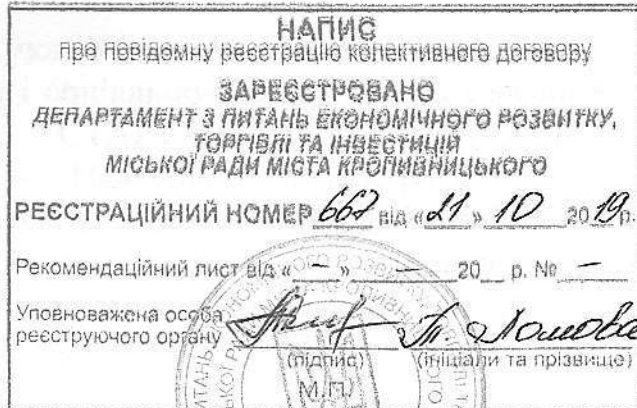 НАПИС
про повідомну реєстрацію колективного договору
ЗАРЕЄСТРОВАНО
ДЕПАРТАМЕНТ З ПИТАНЬ ЕКОНОМІЧНОГО РОЗВИТКУ,
ТОРГІВЛІ ТА ІНВЕСТИЦІЙ
МІСЬКОЇ РАДИ МІСТА КРОПИВНИЦЬКОГО
РЕЄСТРАЦІЙНИЙ НОМЕР 667 від «21» 10 2019р.
Рекомендаційний лист від « — » — 20__ р. № —
Уповноважена особа
реєструючого органу
(підпис) (ініціали та прізвище)
М.П.